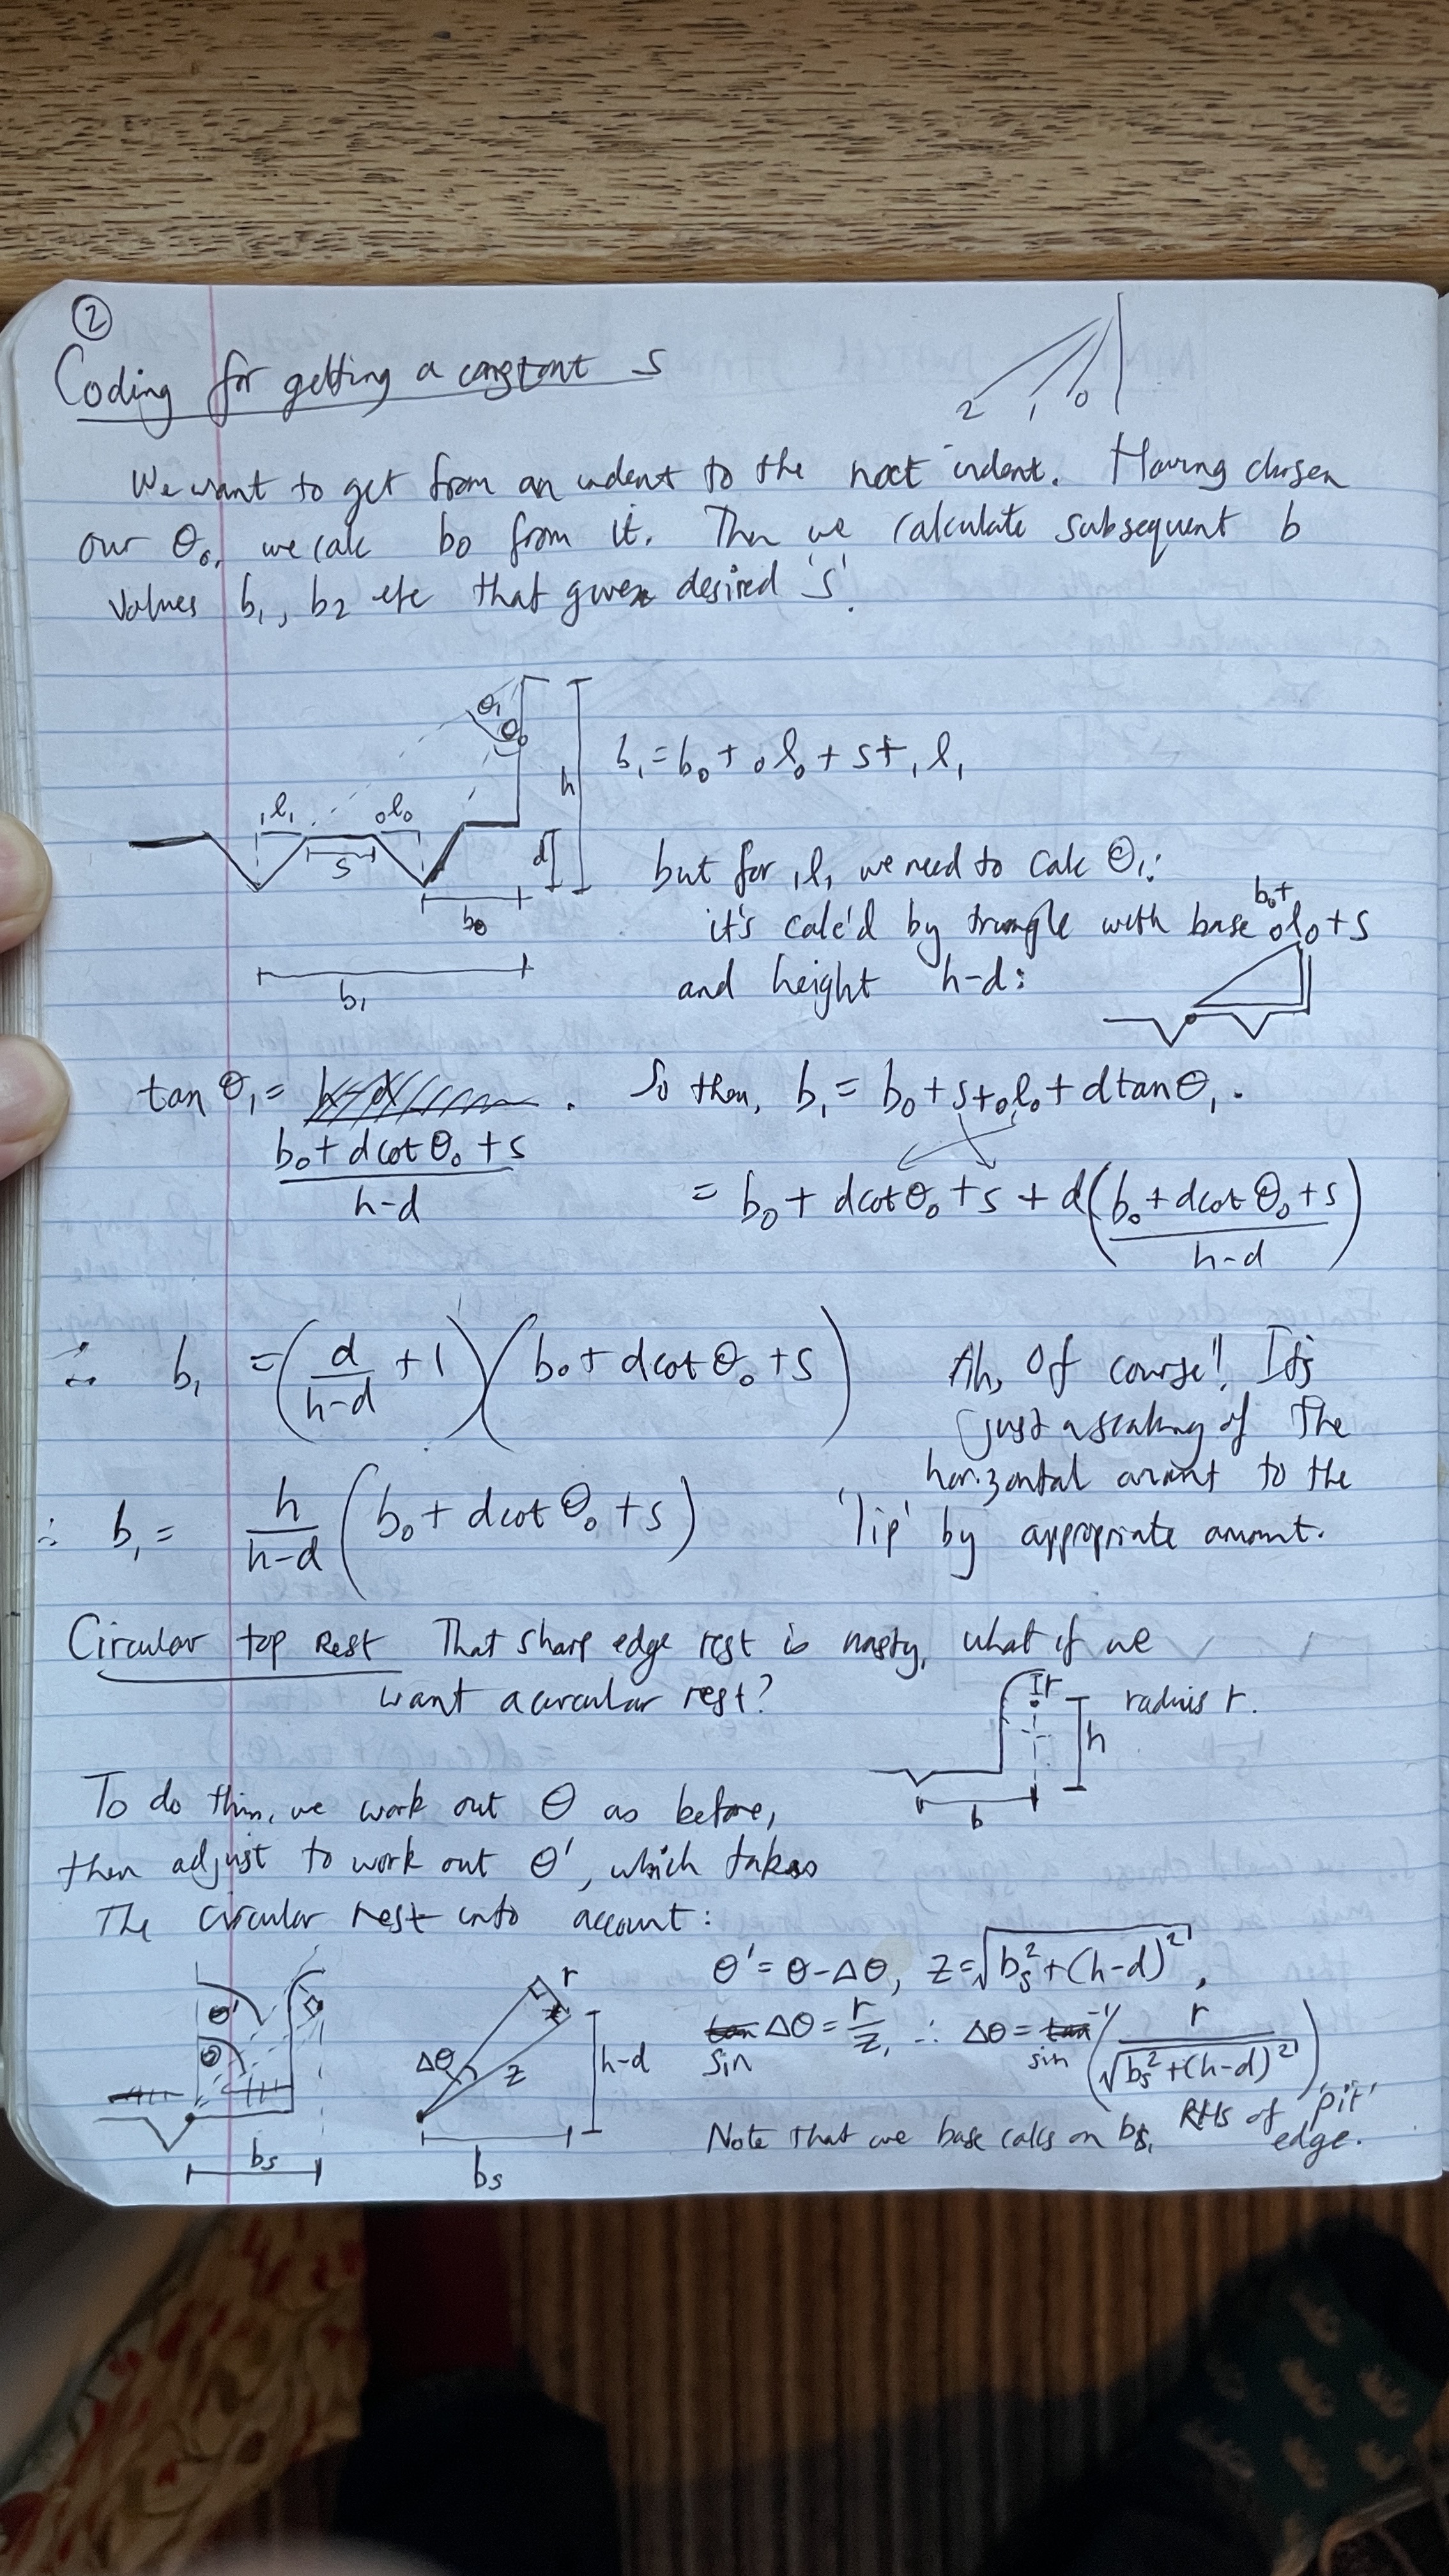 ②
Coding for getting a constant s
2 1 0
We want to get from an indent to the next indent. Having chosen
our θ₀, we calc b₀ from it. Then we calculate subsequent b
values b₁, b₂ etc that gives desired 's'.
θ₁
θ₀
h
₁l₁ ₀l₀
s
d
b₀
b₁
b₁ = b₀ + ₀l₀ + s + ₁l₁
but for ₁l₁ we need to calc θ₁:
it's calc'd by triangle with base b₀+₀l₀+s
and height h-d:
tan θ₁ = (b₀ + d cot θ₀ + s)/(h-d) . So then, b₁ = b₀ + s + ₀l₀ + d tan θ₁.
= b₀ + d cot θ₀ + s + d((b₀ + d cot θ₀ + s)/(h-d))
∴ b₁ = (d/(h-d) + 1)(b₀ + d cot θ₀ + s)
Ah, of course! It's
just a scaling of the
horizontal amount to the
'lip' by appropriate amount.
∴ b₁ = h/(h-d) (b₀ + d cot θ₀ + s)
Circular top Rest That sharp edge rest is nasty, what if we
want a circular rest?
r
radius r.
h
b
To do this, we work out θ as before,
then adjust to work out θ', which takes
the circular rest into account:
θ' = θ - Δθ, z = √(bₛ² + (h-d)²),
sin Δθ = r/z, ∴ Δθ = sin⁻¹(r/√(bₛ² + (h-d)²))
Note that we base calcs on bₛ, RHS of 'pit'
edge.
θ'
θ
bₛ
r
Δθ
z
h-d
bₛ